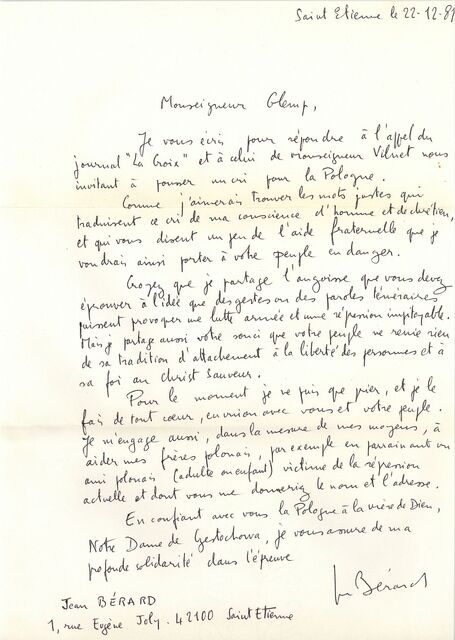 Saint Etienne le 22-12-81
Monseigneur Glemp,
Je vous écris pour répondre à l'appel du
journal "La Croix" et à celui de Monseigneur Vilnet nous
invitant à pousser un cri pour la Pologne.
Comme j'aimerais trouver les mots justes qui
traduisent ce cri de ma conscience d'homme et de chrétien,
et qui vous disent un peu de l'aide fraternelle que je
voudrais ainsi porter à votre peuple en danger.
Croyez que je partage l'angoisse que vous devez
éprouver à l'idée que des gestes ou des paroles téméraires
puissent provoquer une lutte armée et une répression impitoyable.
Mais je partage aussi votre souci que votre peuple ne renie rien
de sa tradition d'attachement à la liberté des personnes et à
sa foi au Christ Sauveur.
Pour le moment je ne puis que prier, et je le
fais de tout cœur, en union avec vous et votre peuple.
Je m'engage aussi, dans la mesure de mes moyens, à
aider mes frères polonais, par exemple en parrainant un
ami polonais (adulte ou enfant) victime de la répression
actuelle et dont vous me donneriez le nom et l'adresse.
En confiant avec vous la Pologne à la mère de Dieu,
Notre Dame de Czestochowa, je vous assure de ma
profonde solidarité dans l'épreuve
Bérard
Jean BÉRARD
1, rue Eugène Joly. 42100 Saint Etienne